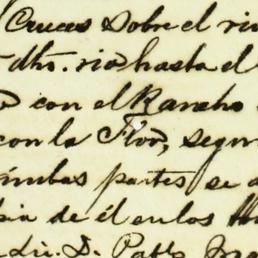 Cruces sobre el ri
dho. rio hasta el
con el Rancho
con la Flor, segun
ambas partes se a
de él en los
D. Pablo